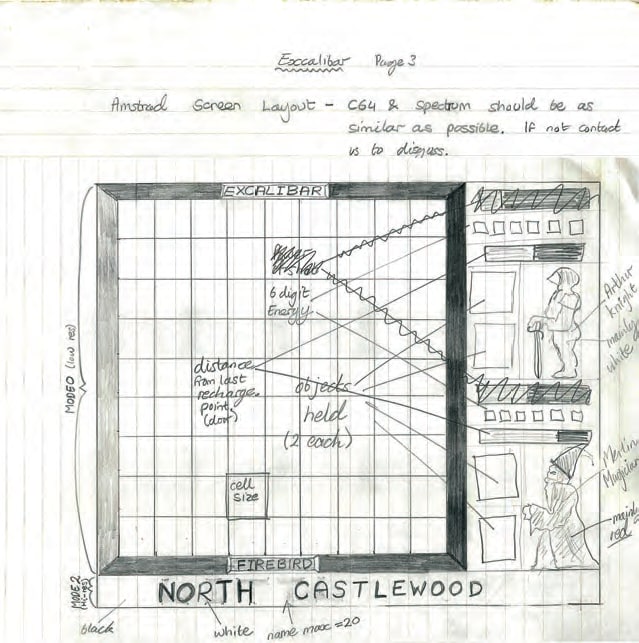 Excalibar Page 3
Amstrad Screen Layout - C64 & Spectrum should be as
similar as possible. If not contact
us to disguss.
EXCALIBAR
6 digit
Energy
distance
from last
recharge
point
(door)
objects
held
(2 each)
cell
size
Arthur
Knight
mainly
white
Merlin
Magician
mainly
red
MODE 0 (low res)
MODE 2
(Hi-res)
FIREBIRD
NORTH CASTLEWOOD
black
white
name max = 20